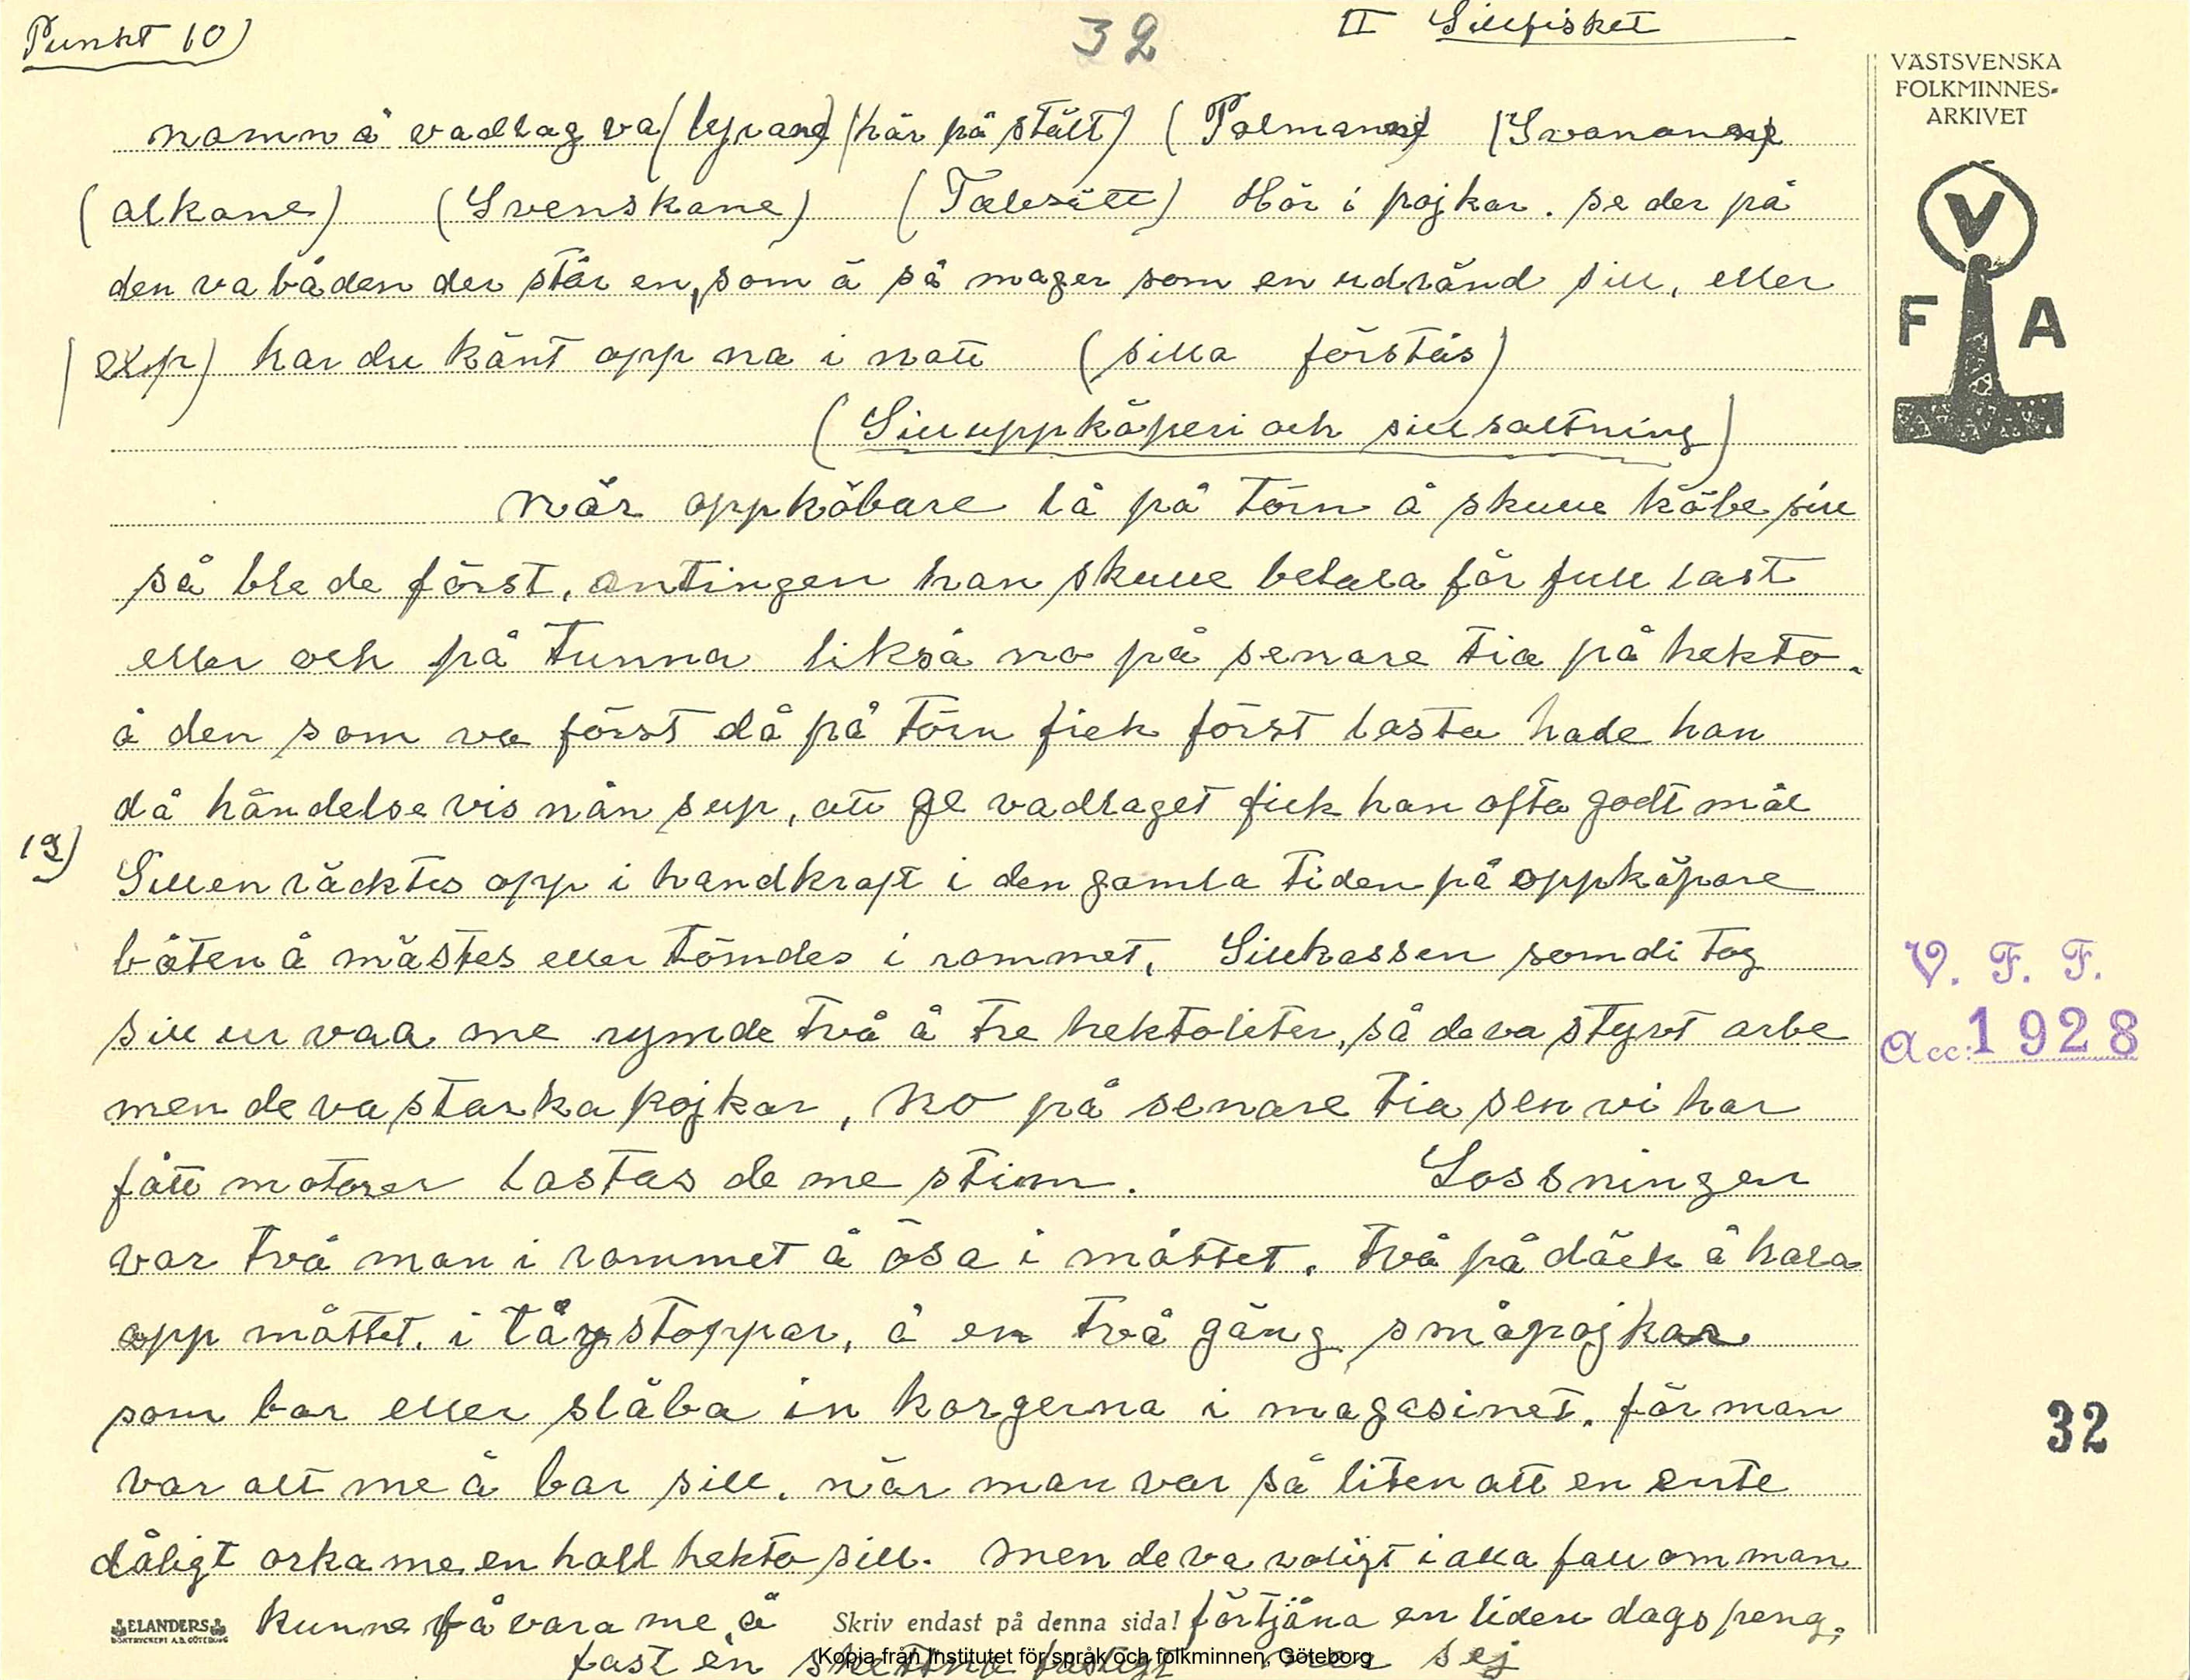 Punkt 10)
32
II Sillfisket
VÄSTSVENSKA
FOLKMINNES-
ARKIVET
V
F A
namn å vadlag va (lyrane) (här på stält) (Tolmanne) (Svanane)
(alkane) (Svenskane) (Talesätt) Hör i pojkar. se der på
den va båden der står en, som ä så mager som en udränd sill, eller
(exp) har du känt opp na i natt (silla förstås)
(Silluppköperi och sillsaltning)
När oppköbare lå på törn å skulle köbe sill
så ble de först, antingen han skulle betala för full last
eller och på tunna likså no på senare tia på hekto.
å den som va först då på törn fick först lasta hade han
då händelsevis nån sup, att ge vadlaget fick han ofta godt mål
19)
Sillen räcktes opp i handkraft i den gamla tiden på oppköpare
båten å mästes eller tömdes i rommet, Sillhassen som di tog
sill ur vaa me rymde två å tre hektoliter, så de va styvt arbe
men de va starka pojkar, no på senare tia sen vi har
fått motorer lastas de me stim. Lossningen
var två man i rommet å ösa i måttet. två på däck å hala
opp måttet. i tågstoppar, å en två gång småpojkar
som bar eller släba in korgerna i magasinet. för man
var allt me å bar sill. när man var så liten att en ente
dåligt orka me en hall hekto sill. men de va roligt i alla fall om man
kunne få vara me å förtjäna en liden dagspeng,
fast en sej
V. F. F.
Acc: 1928
32
ELANDERS
BOKTRYCKERI A.B. GÖTEBORG
Skriv endast på denna sida!
Kopia från Institutet för språk och folkminnen, Göteborg